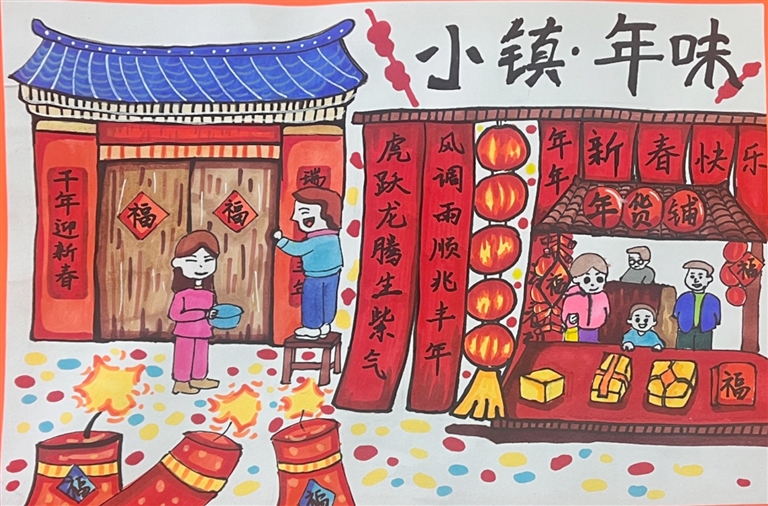 小镇·年味
千年迎新春
福
福
瑞
年
虎跃龙腾生紫气
风调雨顺兆丰年
年年
新春快乐
年货铺
福
福
福
福
福